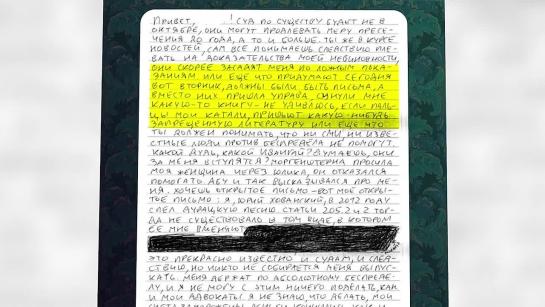 Привет, ! Суд по существу будет не в
октябре, они могут продлевать меру пресе-
чения 20 года, а то и больше. Ты же в курсе
новостей, сам всё понимаешь следствию пле-
вать на доказательства моей невиновности,
они скорее засадят меня по ложным пока-
заниям или ещё что придумают. Сегодня
вот вторник, должны были быть письма, а
вместо них пришла управа, сунули мне
какую-то книгу - не удивлюсь, если паль-
цы мои катали, пришьют какую-нибудь
запрещённую литературу или ещё что
Ты должен понимать, что ни СМИ, ни извес-
тные люди против беспредела не помогут.
Какой Дудь, какой Ивангай? Думаешь, они
за меня вступятся? Моргенштерна просила
моя женщина через Юлика, он отказался
помогать. Абу и так высказывался про ме-
ня. Хочешь открытое письмо - вот моё откры-
тое письмо: я, Юрий Хованский, в 2012 году
спел дурацкую песню. Статьи 205.2 и тог-
да не существовало в том виде, в котором
ее мне вменяют
это прекрасно известно и судам, и след-
ствию, но никто не собирается меня выпус-
кать. Меня держат по абсолютному беспреде-
лу, и я не могу с этим ничего поделать, как
и мои адвокаты. Я не знаю, что делать, мои